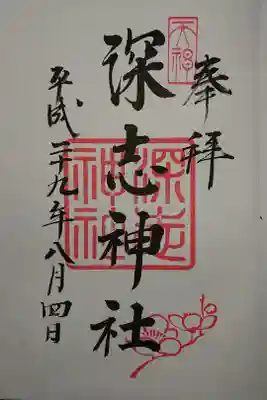 奉拝
天神
深志神社
深志
神社
平成二十九年八月四日